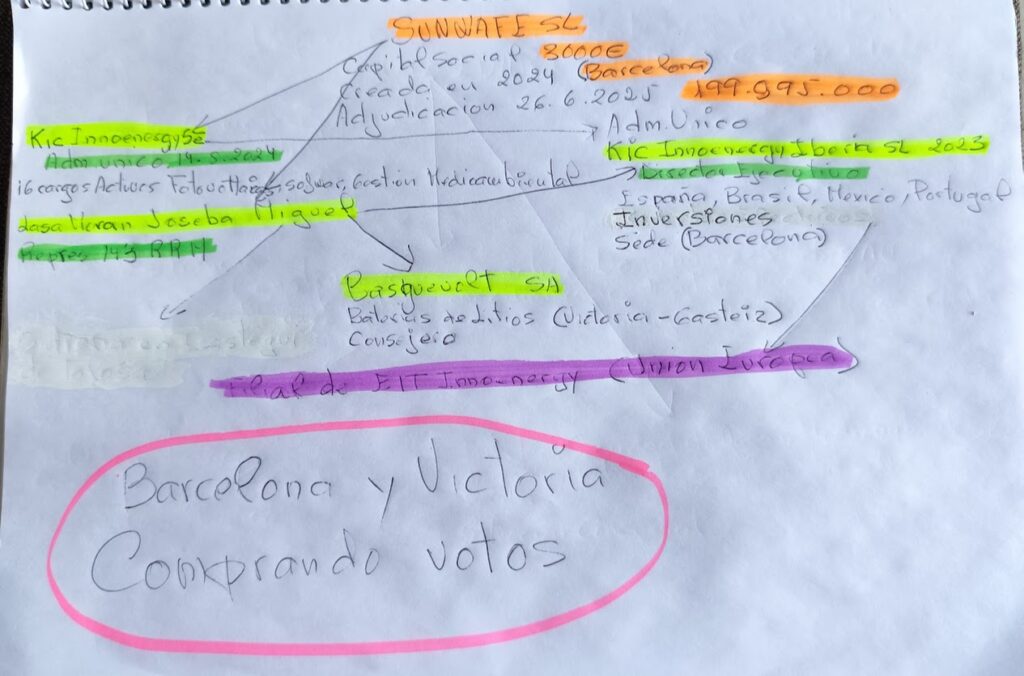 SUNWAFE SL
Capital Social 3000€
Creada en 2024 (Barcelona)
Adjudicacion 26.6.2025 199.995.000
Kic Innoenergy Se
Adm. unico, 14.5.2024
16 cargos Activos Fotovoltaica, solwar, Gestión Medioambiental
dasa Heran Joseba Miguel
Repres 143 RRM
Adm. Unico
Kic Innoenergy Iberia SL 2023
Director Ejecutivo
España, Brasil, Mexico, Portugal
Inversiones
Sede (Barcelona)
Basquevolt SA
Baterias de Litios (Victoria-Gasteiz)
Consejero
Filial de EIT Innoenergy (Union Europea)
Barcelona y Victoria
Comprando votos